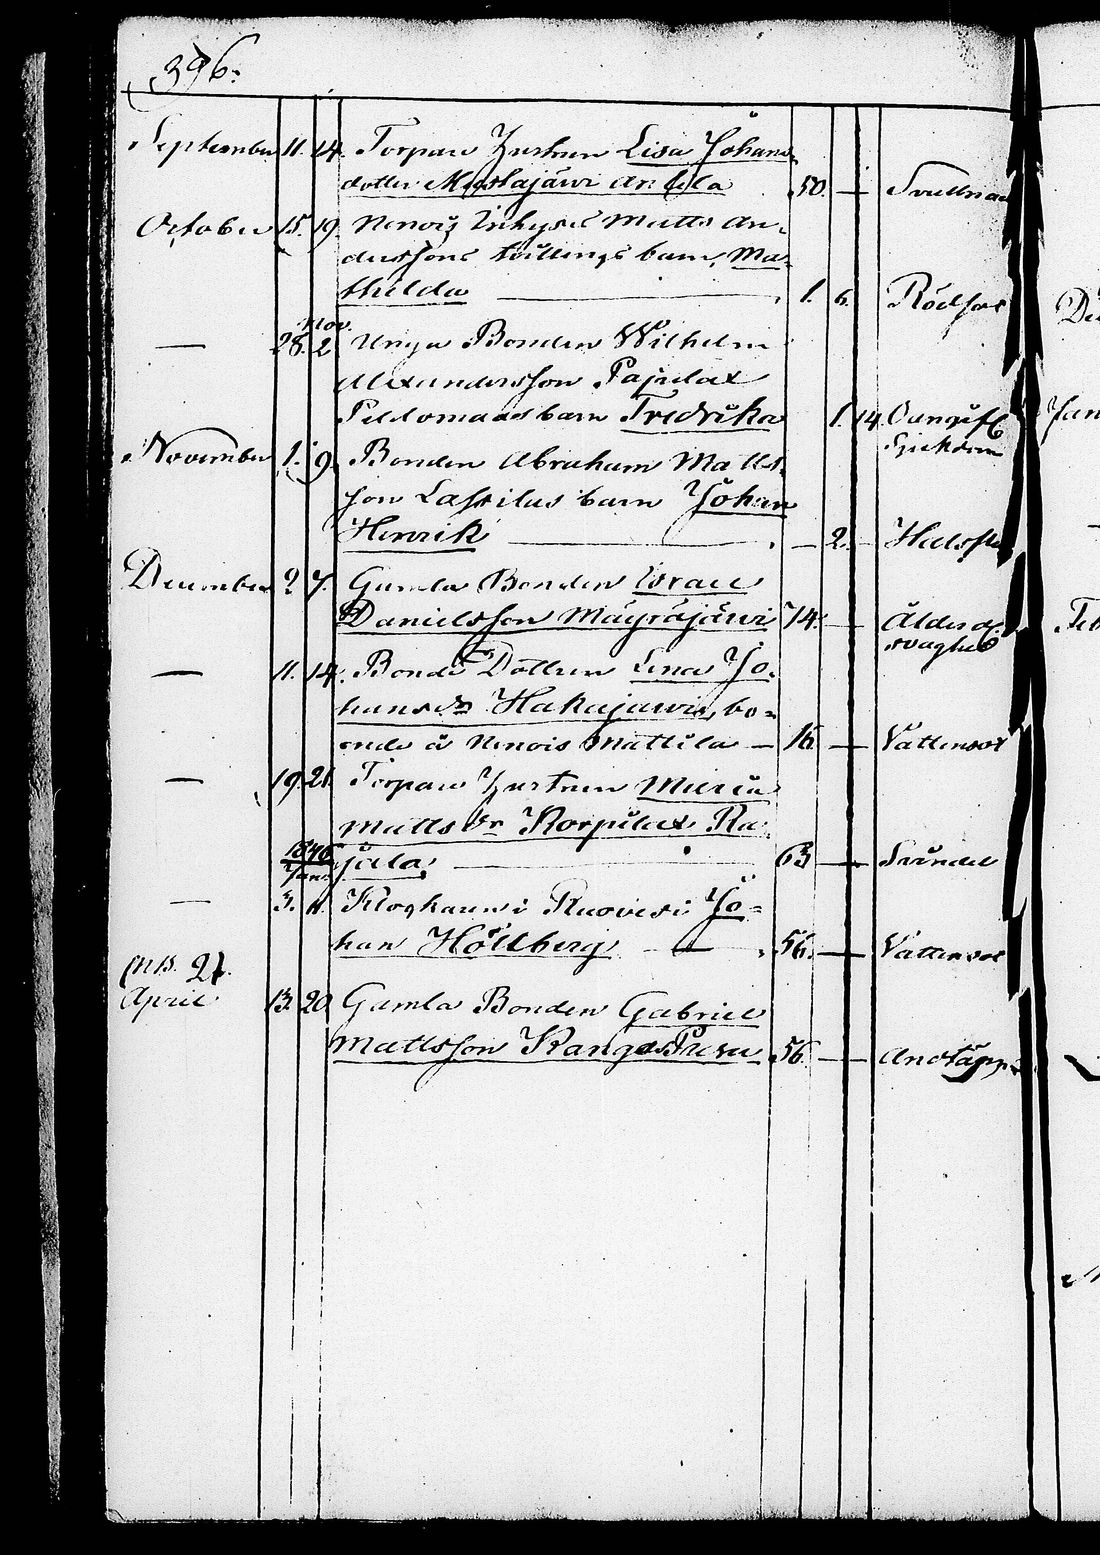 396.
September 11. 14. Torpare Hustrun Lisa Johans
dotter Mustajärvi Anttila 50. — Svullnad
October 15. 19. Nenois Inhyses Matts An-
derssons tvillings barn, Ma-
thilda — 1. 6. Rödsot
— 28. Nov. 2. Unga Bonden Wilhelm
Alexandersson Pajulax
Peldomaas barn Fredrika 1. 14. Oangifv.
Sjukdom
November 1. 9. Bonden Abraham Matts-
son Lassilas barn Johan
Henrik — — 2. — Halssju
December 2 7. Gamla Bonden Israel
Danielsson Mäyräjärvi 74. — Ålderdoms
svaghet
— 11. 14. Bonde Dottren Lena Jo-
hansdr Hakajärvi, bo-
ende å Nenois Mattila — 16. — Vattensot
— 19. 21. Torpare Hustrun Maria
Mattsdr Korpilax Ra-
jala. — 63 — Svindel
1846
Jan.
— 3. 11. Klockaren i Ruovesi Jo-
han Höllberg — 56. — Vattensot
(NB. 21.
April 13. 20. Gamla Bonden Gabriel
Mattsson Kangas 56. — Andtäppa